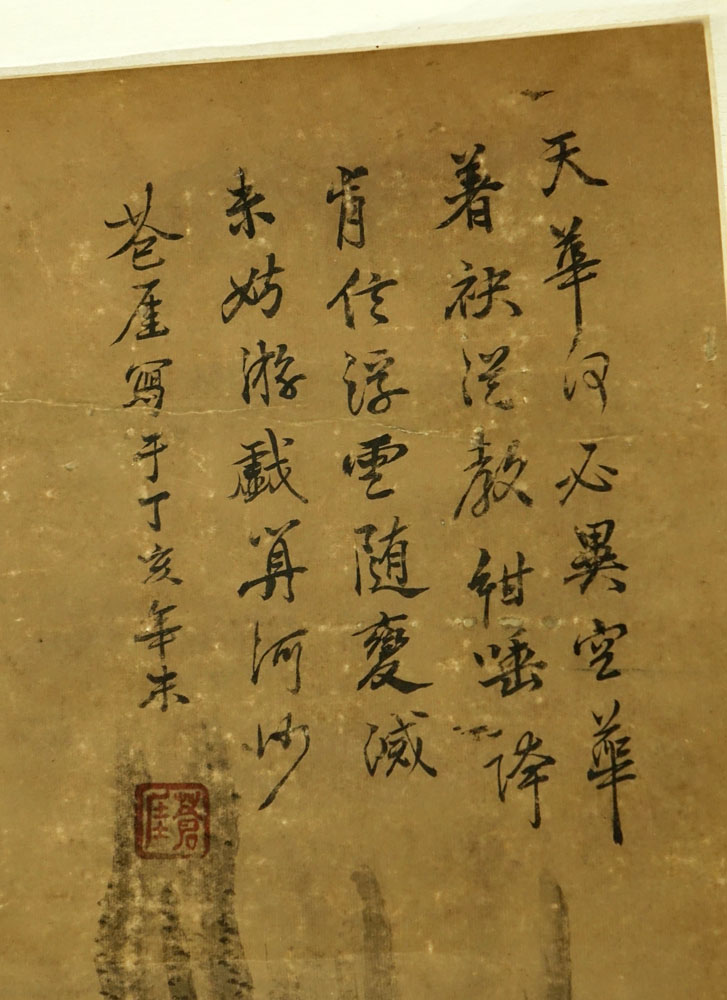 天華何必異空華
着袂從教紺唾誇
肯信浮雲隨變滅
未妨游戲算河沙
蒼厓寫于丁亥年末
蒼厓